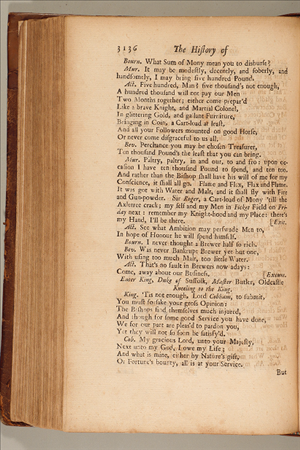 3136 The History of
Bourn. What Sum of Mony mean you to disburse?
Mur. It may be modestly, decently, and soberly, and
handsomely, I may bring five hundred Pound.
Act. Five hundred, Man! five thousand's not enough,
A hundred thousand will not pay our Men
Two Months together; either come prepar'd
Like a brave Knight, and Martial Colonel,
In glittering Gold, and gallant Furniture,
Bringing in Coin, a Cart-load at least,
And all your Followers mounted on good Horse,
Or never come disgraceful to us all.
Bev. Perchance you may be chosen Treasurer,
Ten thousand Pound's the least that you can bring.
Mur. Paltry, paltry, in and out, to and fro: upon oc-
casion I have ten thousand Pound to spend, and ten too.
And rather than the Bishop shall have his will of me for my
Conscience, it shall all go. Flame and Flax, Flax and Flame.
It was got with Water and Malt, and it shall fly with Fire
and Gun-powder. Sir Roger, a Cart-load of Mony 'till the
Axletree crack; my self and my Men in Ficket Field on Fri-
day next: remember my Knight-hood and my Place: there's
my Hand, I'll be there. [Exit.
Act. See what Ambition may perswade Men to,
In hope of Honour he will spend himself.
Bourn. I never thought a Brewer half so rich.
Bev. Was never Bankrupt Brewer yet but one,
With using too much Malt, too little Water.
Act. That's no fault in Brewers now adays:
Come, away about our Business. [Exeunt.
Enter King, Duke of Suffolk, Master Butler, Oldcastle
Kneeling to the King.
King. 'Tis not enough, Lord Cobham, to submit,
You must forsake your gross Opinion:
The Bishops find themselves much injured,
And though for some good Service you have done,
We for our part are pleas'd to pardon you,
Yet they will not so soon be satisfy'd.
Cob. My gracious Lord, unto your Majesty,
Next unto my God, I owe my Life;
And what is mine, either by Nature's gift,
Or Fortune's bounty, all is at your Service.
But